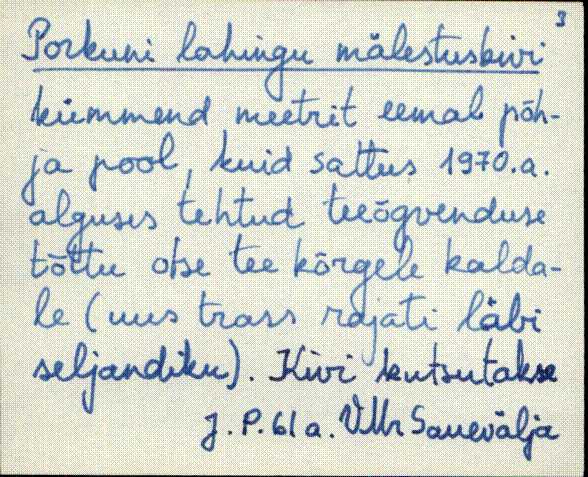 3
Porkuni lahingu mälestuskivi
kümmend meetrit eemal põh-
ja pool, kuid sattus 1970.a.
alguses tehtud teeõgvenduse
tõttu otse tee kõrgele kalda-
le (uus trass rajati läbi
seljandiku). Kivi kutsutakse
J. P. 61 a. V. Mlr Sauevälja